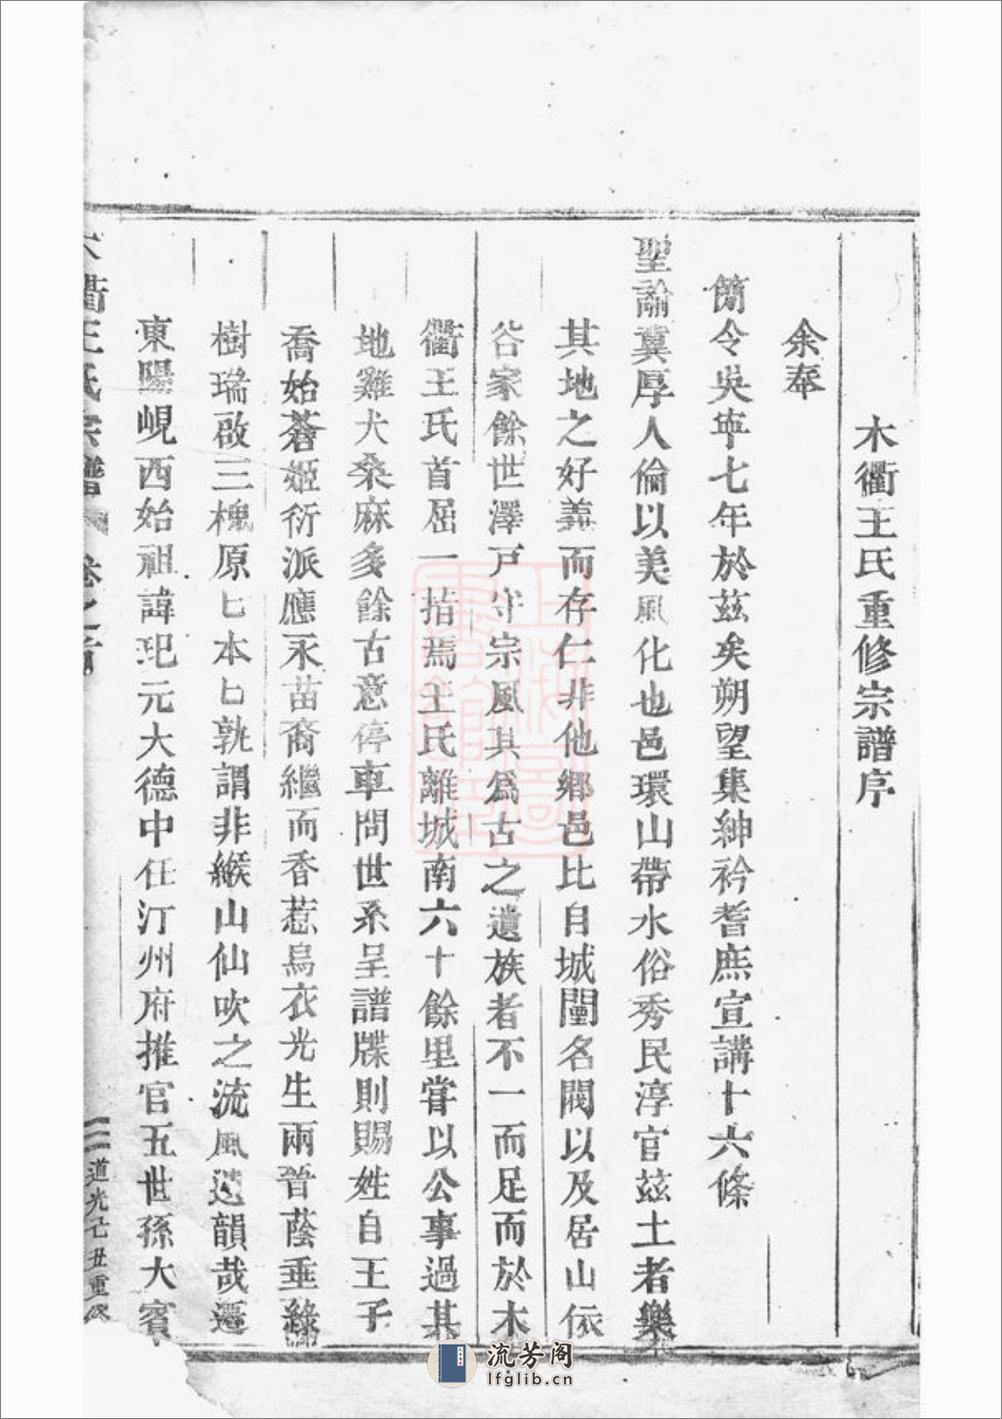 木衢王氏重修宗譜序
余奉
簡令吳寕七年於茲矣朔望集紳衿耆庶宣講十六條
聖諭冀厚人倫以美風化也邑環山帶水俗秀民淳官茲土者樂
其地之好義而存仁非他鄉邑比自城闉名閥以及居山依
谷家餘世澤戸守宗風其爲古之遺族者不一而足而於木
衢王氏首屈一指焉王氏離城南六十餘里嘗以公事過其
地雞犬桑麻多餘古意停車問世系呈譜牒則賜姓自王子
喬始蒼姬衍派應永苗裔繼而香惹烏衣光生兩晉蔭垂綠
樹瑞啟三槐原匕本匕孰謂非緱山仙吹之流風遺韻哉遷
東陽峴西始祖諱玘元大德中任汀州府推官五世孫大賓
木衢王氏宗譜 卷之首 道光己丑重修
流芳阁
lfglib.cn